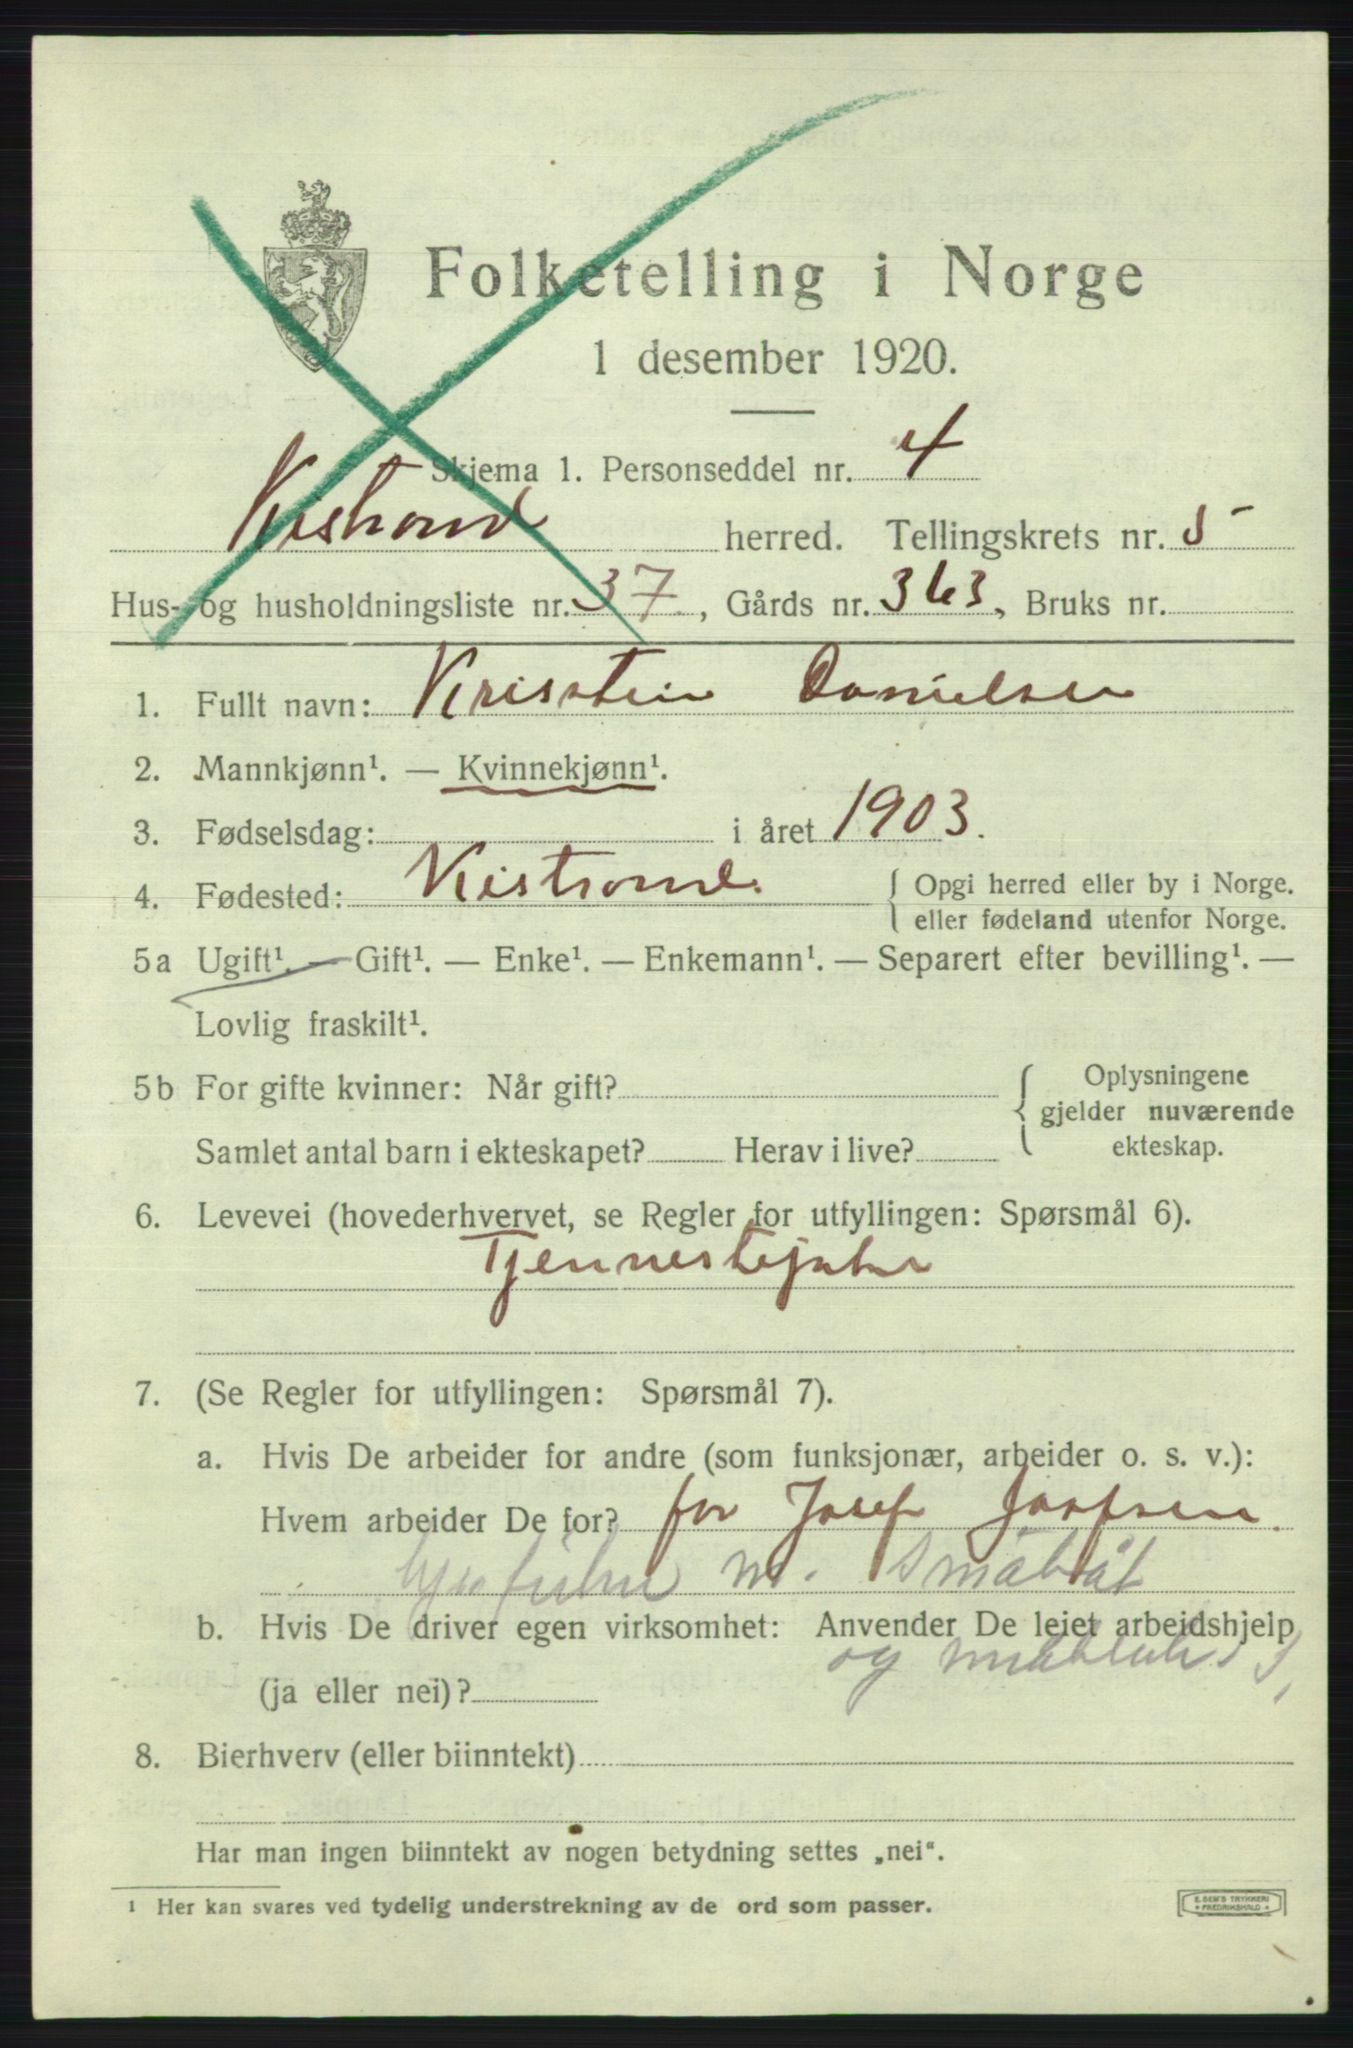 Folketelling i Norge
1 desember 1920.
Skjema 1. Personseddel nr. 4
Kistrand herred. Tellingskrets nr. 5
Hus- og husholdningsliste nr. 37, Gårds nr. 363, Bruks nr.
1. Fullt navn: Krisstin Danielsen
2. Mannkjønn¹. — Kvinnekjønn¹.
3. Fødselsdag: i året 1903.
4. Fødested: Kistrand. { Opgi herred eller by i Norge.
eller fødeland utenfor Norge.
5a Ugift¹. — Gift¹. — Enke¹. — Enkemann¹. — Separert efter bevilling¹. —
Lovlig fraskilt¹.
5b For gifte kvinner: Når gift? { Oplysningene
gjelder nuværende
ekteskap.
Samlet antal barn i ekteskapet? Herav i live?
6. Levevei (hovederhvervet, se Regler for utfyllingen: Spørsmål 6).
Tjennestejente
7. (Se Regler for utfyllingen: Spørsmål 7).
a. Hvis De arbeider for andre (som funksjonær, arbeider o. s. v.):
Hvem arbeider De for? for Josef Josefsen.
m. småbåt
b. Hvis De driver egen virksomhet: Anvender De leiet arbeidshjelp
og
(ja eller nei)?
8. Bierhverv (eller biinntekt)
Har man ingen biinntekt av nogen betydning settes „nei“.
¹ Her kan svares ved tydelig understrekning av de ord som passer.
E. SEM'S TRYKKERI
FREDRIKSHALD